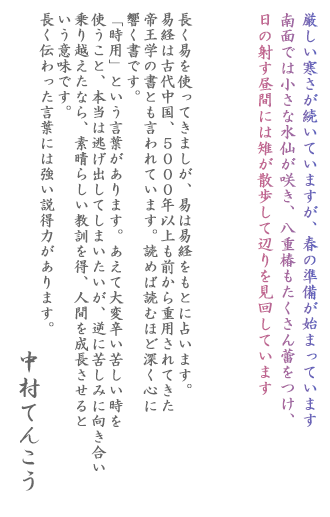 厳しい寒さが続いていますが、春の準備が始まっています
南面では小さな水仙が咲き、八重椿もたくさん蕾をつけ、
日の射す昼間には雉が散歩して辺りを見回しています
長く易を使ってきましが、易は易経をもとに占います。
易経は古代中国、5000年以上も前から重用されてきた
帝王学の書とも言われています。読めば読むほど深く心に
響く書です。
「時用」という言葉があります。あえて大変辛い苦しい時を
使うこと、本当は逃げ出してしまいたいが、逆に苦しみに向き合い
乗り越えたなら、素晴らしい教訓を得、人間を成長させると
いう意味です。
長く伝わった言葉には強い説得力があります。
中村てんこう